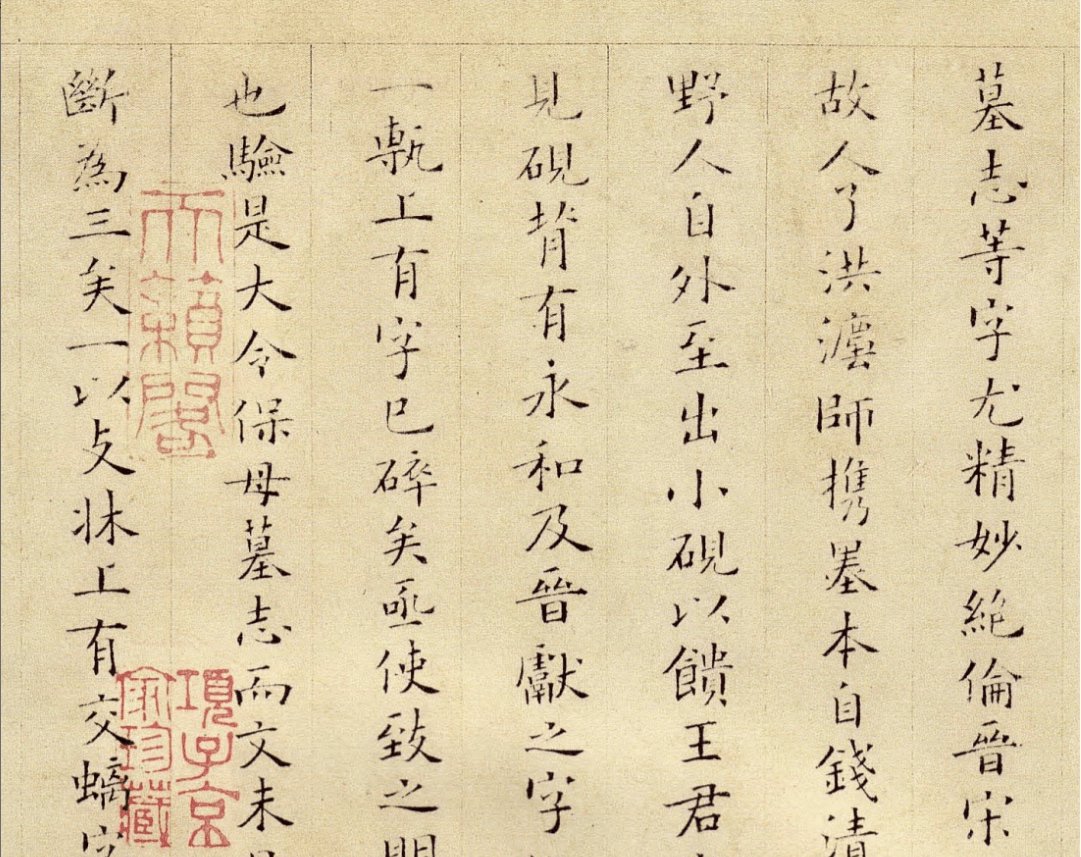 墓志等字尤精妙絕倫晉宋
故人了洪灋師携墨本自錢清
野人自外至出小硯以饋王君
見硯背有永和及晉獻之字
一甎上有字已碎矣亟使致之明
也驗是大令保母墓志而文未
斷為三矣一以支牀上有交螭字
天籟閣
項子京
家珍藏